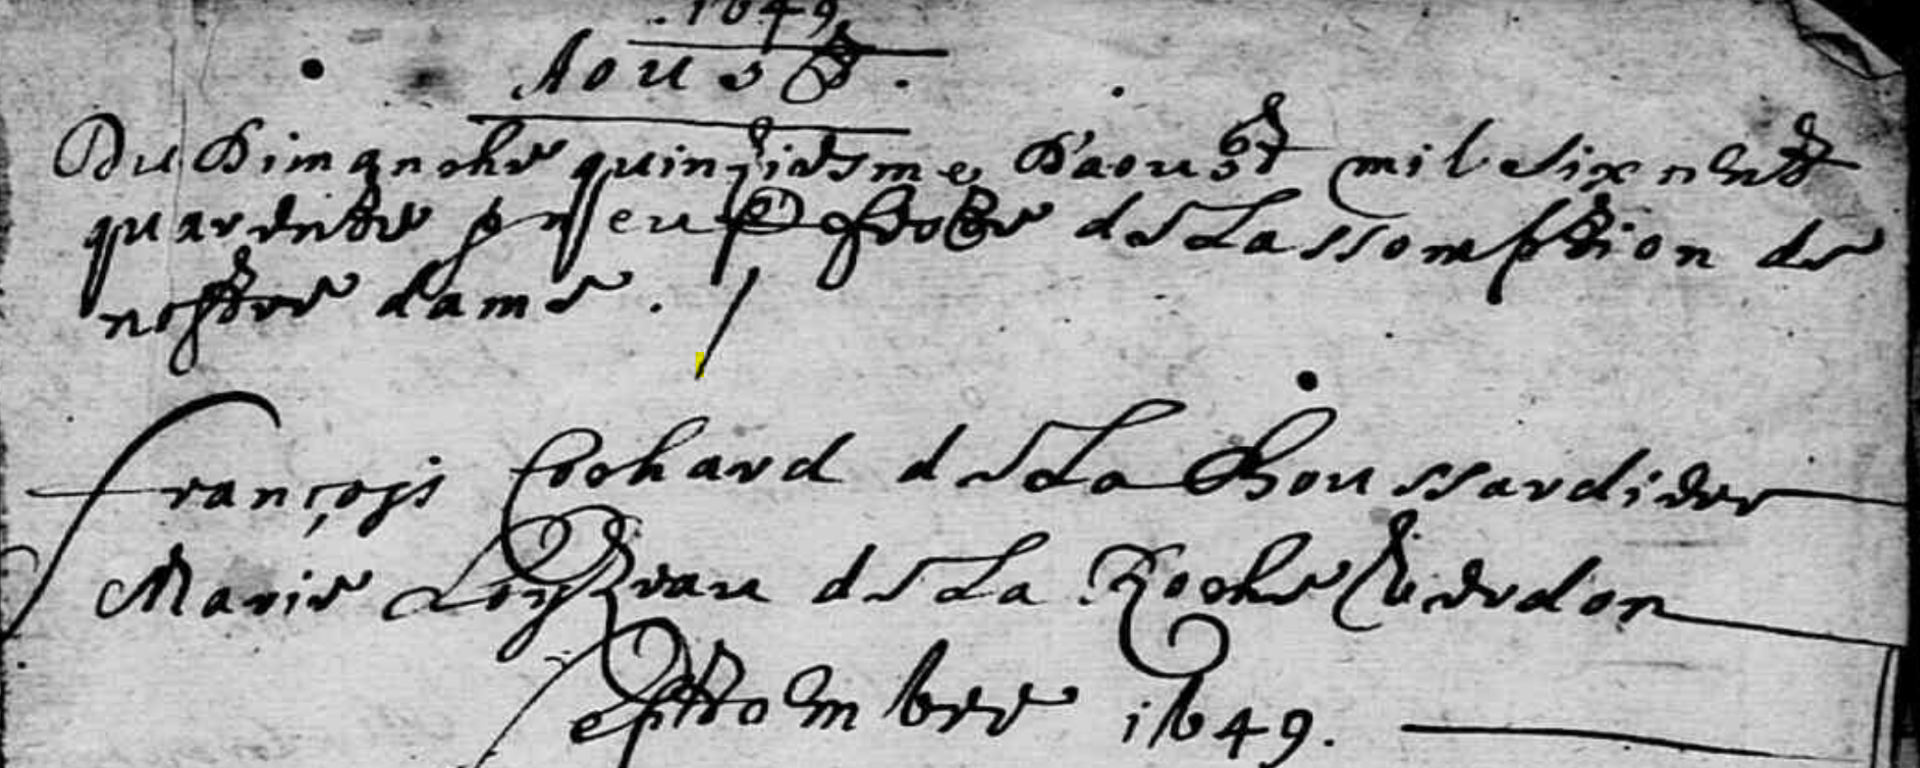 .1649.
Aoust.
Du Dimanche quinziesme D'aoust mil six cents
quarente neuf feste de Lassomption de
nostre dame.
françoys Cochard de La Boussardiere
Marie Loyseau de La Roche
septembre 1649.